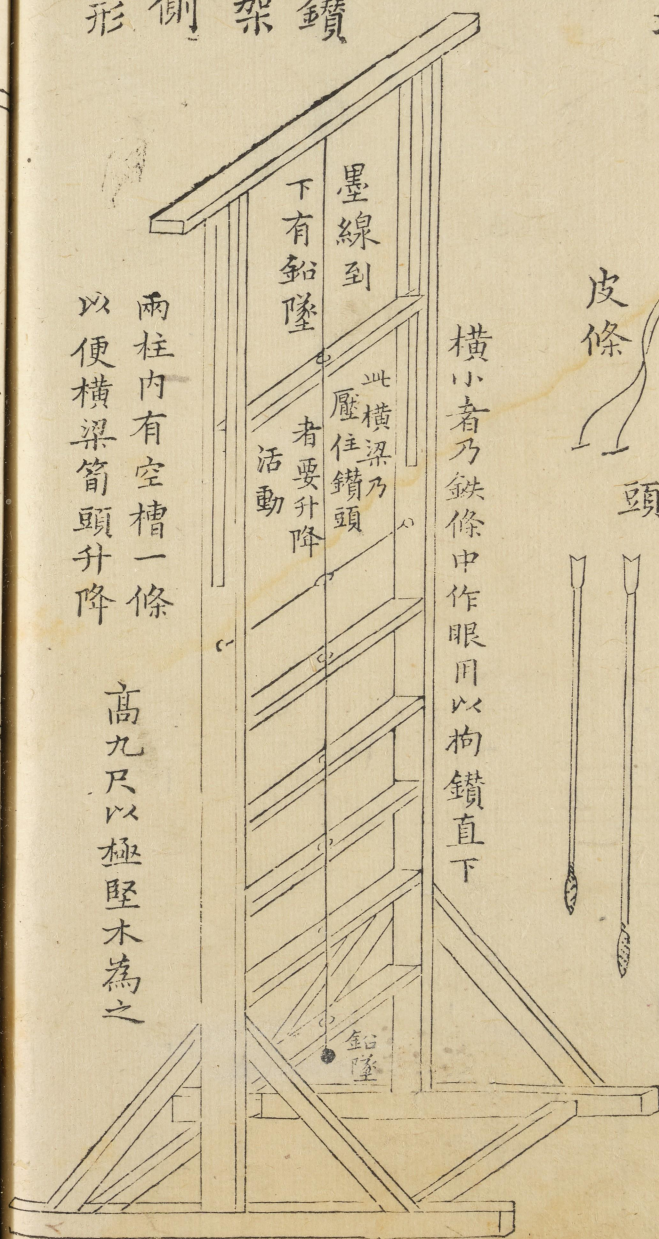 鑽
架
側
形
皮條
頭
墨線到
下有鉛墜
橫小者乃鉄條中作眼用以拘鑽直下
此橫梁乃
壓住鑽頭
者要升降
活動
兩柱內有空槽一條
以便橫梁筍頭升降
高九尺以極堅木為之
鉛墜